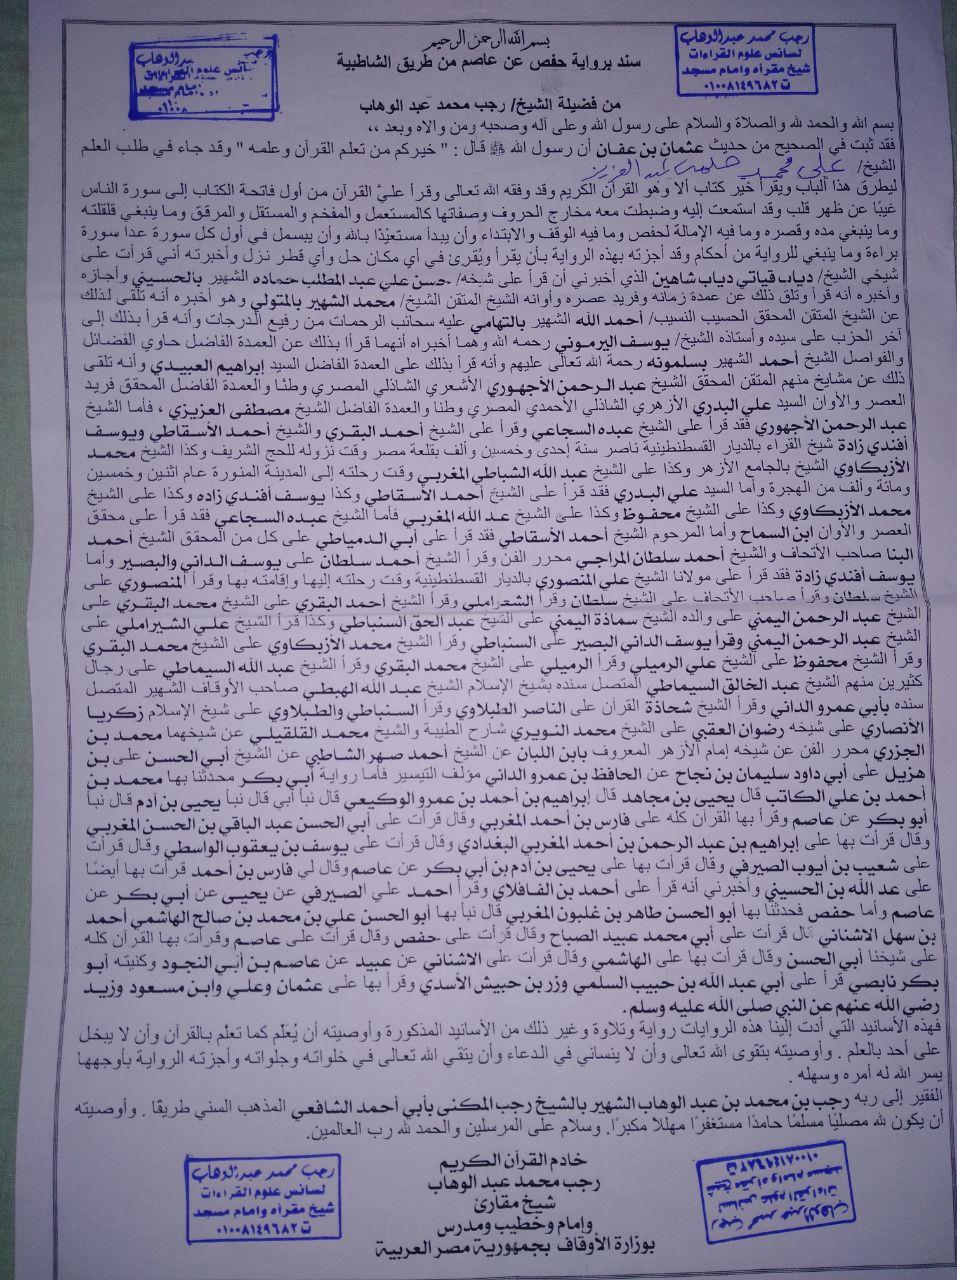 بسم الله الرحمن الرحيم
رجب محمد عبد الوهاب
لسانس علوم القراءات
شيخ مقرأه وامام مسجد
ت ٠١٠٠٨١٤٩٦٨٢
سند برواية حفص عن عاصم من طريق الشاطبية
من فضيلة الشيخ/ رجب محمد عبد الوهاب
بسم الله والحمد لله والصلاة والسلام على رسول الله وعلى آله وصحبه ومن والاه وبعد ،،
فقد ثبت في الصحيح من حديث عثمان بن عفان أن رسول الله ﷺ قال : " خيركم من تعلم القرآن وعلمه " وقد جاء في طلب العلم
الشيخ/ على محمد حلمى عبد العزيز
ليطرق هذا الباب ويقرأ خير كتاب ألا وهو القرآن الكريم وقد وفقه الله تعالى وقرأ عليَّ القرآن من أول فاتحة الكتاب إلى سورة الناس
غيبًا عن ظهر قلب وقد استمعت إليه وضبطت معه مخارج الحروف وصفاتها كالمستعمل والمفخم والمستقل والمرقق وما ينبغي قلقلته
وما ينبغي مده وقصره وما فيه الإمالة لحفص وما فيه الوقف والابتداء وأن يبدأ مستعيذًا بالله وأن يبسمل في أول كل سورة عدا سورة
براءة وما ينبغي للرواية من أحكام وقد أجزته بهذه الرواية بأن يقرأ ويُقرئ في أي مكان حل وأي قطر نزل وأخبرته أني قرأت على
شيخي الشيخ/ دياب قياتي دياب شاهين الذي أخبرني أن قرأ على شيخه/ حسن علي عبد المطلب حماده الشهير بالحسيني وأجازه
وأخبره أنه قرأ وتلق ذلك عن عمدة زمانه وفريد عصره وأوانه الشيخ المتقن الشيخ/ محمد الشهير بالمتولي وهو أخبره أنه تلقى لذلك
عن الشيخ المتقن المحقق الحسيب النسيب/ أحمد الله الشهير بالتهامي عليه سحائب الرحمات من رفيع الدرجات وأنه قرأ بذلك إلى
آخر الحزب على سيده وأستاذه الشيخ/ يوسف البرموني رحمه الله وهما أخبراه أنهما قرأا بذلك عن العمدة الفاضل حاوي الفضائل
والفواصل الشيخ أحمد الشهير بسلمونه رحمة الله تعالى عليهم وأنه قرأ بذلك على العمدة الفاضل السيد إبراهيم العبيدي وأنه تلقى
ذلك عن مشايخ منهم المتقن المحقق الشيخ عبد الرحمن الأجهوري الأشعري الشاذلي المصري وطنًا والعمدة الفاضل المحقق فريد
العصر والأوان السيد علي البدري الأزهري الشاذلي الأحمدي المصري وطنا والعمدة الفاضل الشيخ مصطفى العزيزي ، فأما الشيخ
عبد الرحمن الأجهوري فقد قرأ على الشيخ عبده السجاعي وقرأ على الشيخ أحمد البقري والشيخ أحمد الأسقاطي ويوسف
أفندي زادة شيخ القراء بالديار القسطنطينية ناصر سنة إحدى وخمسين وألف بقلعة مصر وقت نزوله للحج الشريف وكذا الشيخ محمد
الأزبكاوي الشيخ بالجامع الأزهر وكذا على الشيخ عبد الله الشباطي المغربي وقت رحلته إلى المدينة المنورة عام اثنين وخمسين
ومائة وألف من الهجرة وأما السيد علي البدري فقد قرأ على الشيخ أحمد الأسقاطي وكذا يوسف أفندي زاده وكذا على الشيخ
محمد الأزبكاوي وكذا على الشيخ محفوظ وكذا على الشيخ عبد الله المغربي فأما الشيخ عبده السجاعي فقد قرأ على محقق
العصر والأوان ابن السماح وأما المرحوم الشيخ أحمد الأسقاطي فقد قرأ على أبي الدمياطي على كل من المحقق الشيخ أحمد
البنا صاحب الأتحاف والشيخ أحمد سلطان المراجي محرر الفن وقرأ الشيخ أحمد سلطان على يوسف الداني والبصير وأما
يوسف أفندي زادة فقد قرأ على مولانا الشيخ علي المنصوري بالديار القسطنطينية وقت رحلته إليها وإقامته بها وقرأ المنصوري على
الشيخ سلطان وقرأ صاحب الأتحاف على الشيخ سلطان وقرأ الشعراملي وقرأ الشيخ أحمد البقري على الشيخ محمد البقري على
الشيخ عبد الرحمن اليمني على والده الشيخ سماذة اليمني على الشيخ عبد الحق السنباطي وكذا قرأ الشيخ علي الشبراملي على
الشيخ عبد الرحمن اليمني وقرأ يوسف الداني البصير على السنباطي وقرأ الشيخ محمد الأزبكاوي على الشيخ محمد البقري
وقرأ الشيخ محفوظ على الشيخ علي الرميلي وقرأ الرميلي على الشيخ محمد البقري وقرأ الشيخ عبد الله السيماطي على رجال
كثيرين منهم الشيخ عبد الخالق السيماطي المتصل سنده بشيخ الإسلام الشيخ عبد الله الهبطي صاحب الأوقاف الشهير المتصل
سنده بأبي عمرو الداني وقرأ الشيخ شحاذة القرآن على الناصر الطبلاوي وقرأ السنباطي والطبلاوي على شيخ الإسلام زكريا
الأنصاري على شيخه رضوان العقبي على الشيخ محمد النويري شارح الطيبة والشيخ محمد القلقيلي عن شيخهما محمد بن
الجزري محرر الفن عن شيخه إمام الأزهر المعروف بابن اللبان عن الشيخ أحمد صهر الشاطبي عن الشيخ أبي الحسن علي بن
هزيل على أبي داود سليمان بن نجاح عن الحافظ بن عمرو الداني مؤلف التيسير فأما رواية أبي بكر محدثنا بها محمد بن
أحمد بن علي الكاتب قال يحيى بن مجاهد قال إبراهيم بن أحمد بن عمرو الوكيعي قال نبأ أبي قال نبأ يحيى بن آدم قال نبأ
أبو بكر عن عاصم وقرأ بها القرآن كله على فارس بن أحمد المغربي وقال قرأت على أبي الحسن عبد الباقي بن الحسن المغربي
وقال قرأت بها على إبراهيم بن عبد الرحمن بن أحمد المغربي البغدادي وقال قرأت على يوسف بن يعقوب الواسطي وقال قرأت
على شعيب بن أيوب الصيرفي وقال قرأت بها على يحيى بن آدم بن أبي بكر عن عاصم وقال لي فارس بن أحمد قرأت بها أيضًا
على عد الله بن الحسيني وأخبرني أنه قرأ على أحمد بن الفافلاي وقرأ احمد على الصيرفي عن يحيى عن أبي بكر عن
عاصم وأما حفص فحدثنا بها أبو الحسن طاهر بن غلبون المغربي قال نبأ بها أبو الحسن علي بن محمد بن صالح الهاشمي أحمد
بن سهل الاشناني قال قرأت على أبي محمد عبيد الصباح وقال قرأت على حفص وقال قرأت على عاصم وقرأت بها القرآن كله
على شيخنا أبي الحسن وقال قرأت بها على الهاشمي وقال قرأت على الاشناني عن عبيد عن عاصم بن أبي النجود وكنيته أبو
بكر نابصي قرأ على أبي عبد الله بن حبيب السلمي وزر بن حبيش الأسدي وقرأ بها على عثمان وعلي وابن مسعود وزيد
رضي الله عنهم عن النبي صلى الله عليه وسلم .
فهذه الأسانيد التي أدت إلينا هذه الروايات رواية وتلاوة وغير ذلك من الأسانيد المذكورة وأوصيته أن يُعلّم كما تعلّم بالقرآن وأن لا يبخل
على أحد بالعلم . وأوصيته بتقوى الله تعالى وأن لا ينساني في الدعاء وأن يتقي الله تعالى في خلواته وجلواته وأجزته الرواية بأوجهها
يسر الله له أمره وسهله .
الفقير إلى ربه رجب بن محمد بن عبد الوهاب الشهير بالشيخ رجب المكنى بأبي أحمد الشافعي المذهب السني طريقًا . وأوصيته
أن يكون لله مصليًا مسلمًا حامدًا مستغفرًا مهللا مكبرًا. وسلام على المرسلين والحمد لله رب العالمين.
خادم القرآن الكريم
رجب محمد عبد الوهاب
شيخ مقارئ
وإمام وخطيب ومدرس
بوزارة الأوقاف بجمهورية مصر العربية
رجب محمد عبد الوهاب
لسانس علوم القراءات
شيخ مقرأه وامام مسجد
ت ٠١٠٠٨١٤٩٦٨٢
رجب محمد عبد الوهاب
لسانس علوم القراءات
شيخ مقرأه وامام مسجد
ت ٠١٠٠٨١٤٩٦٨٢